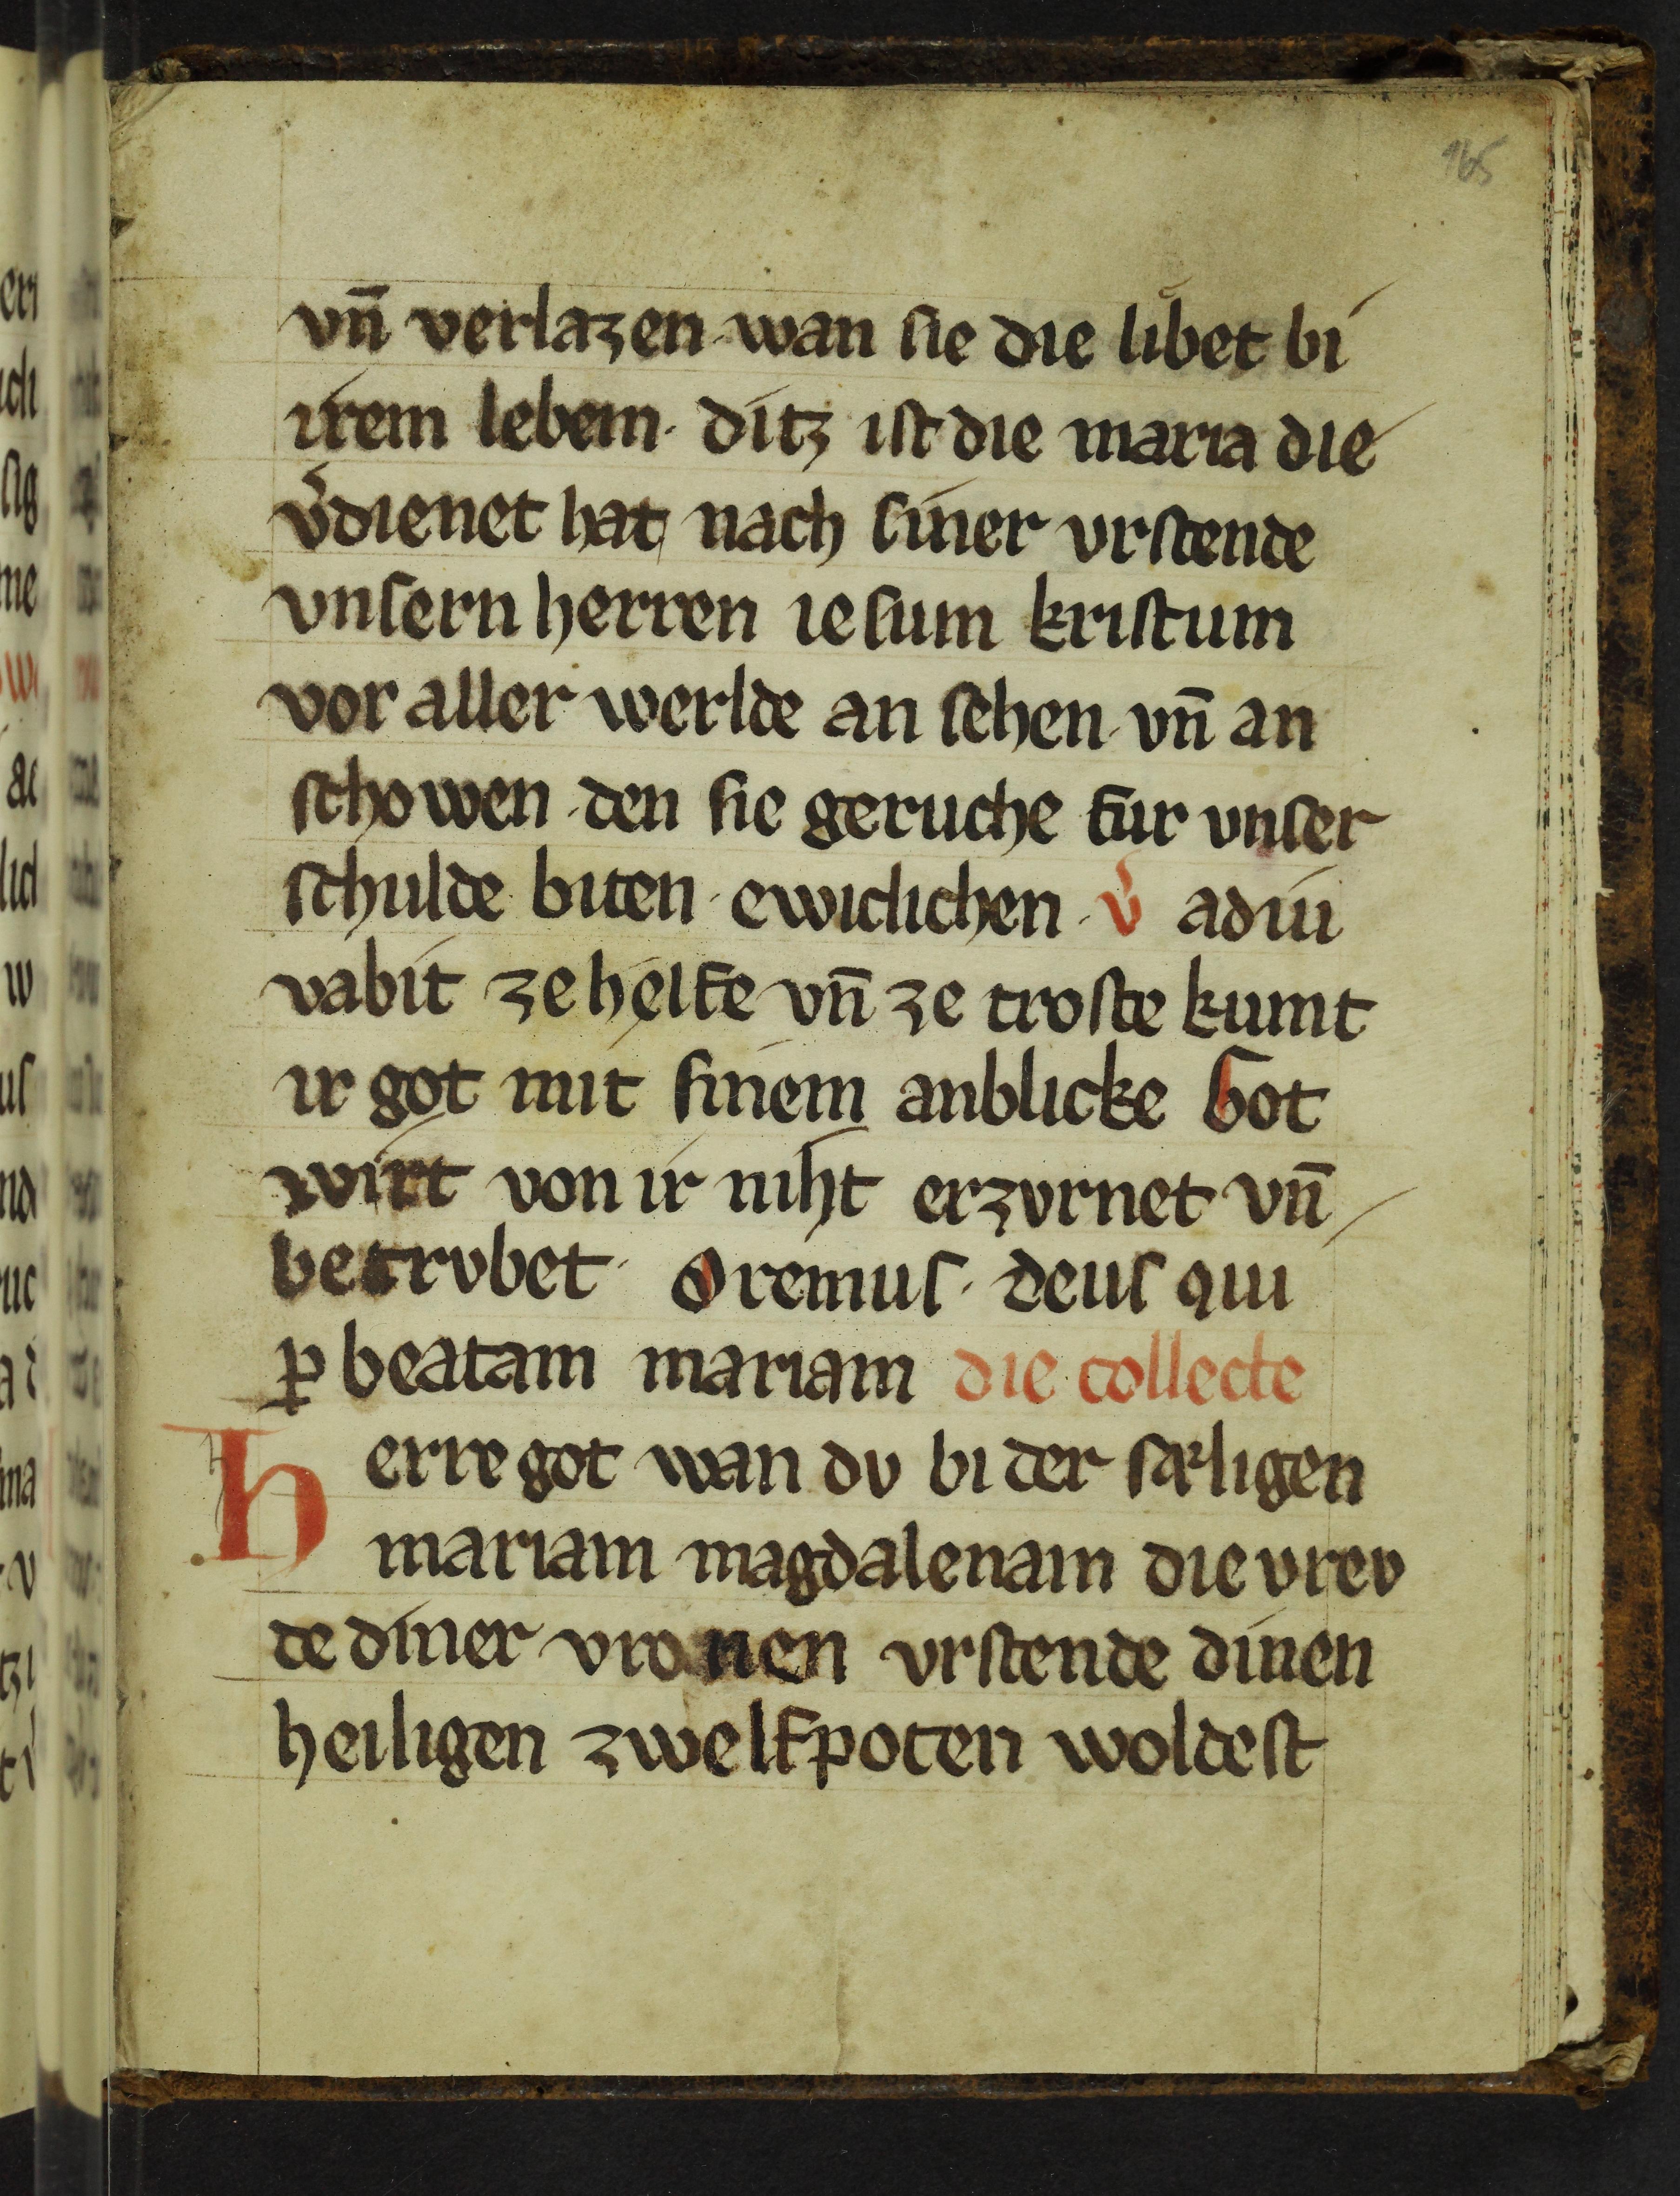 165
vn̄ verlazen. wan sie die libet bi
irem lebem. ditz ist die maria die
v̄dienet hat nach siner vrstende
vnsern herren iesum kristum
vor aller werlde an sehen. vn̄ an
schowen. den sie geruche fur vnser
schulde biten. ewiclichen. v̄ adiu
vabit ze helfe vn̄ ze troste kumt
ir got mit sinem anblicke Got
wirt von ir niht erzvrnet vn̄
betrvbet. Oremus. deus qui
ꝑ beatam mariam die collecte
Herre got wan dv bi der sæligen
mariam magdalenam die vrev
de diner vronen vrstende dinen
heiligen zwelfpoten woldest